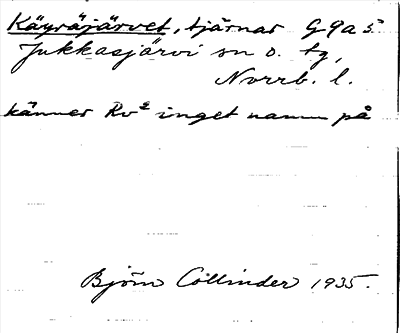 Käyräjärvet, tjärnar G9a5
Jukkasjärvi sn o. tg,
Norrb. l.
känner Rv² inget namn på
Björn Collinder 1935.